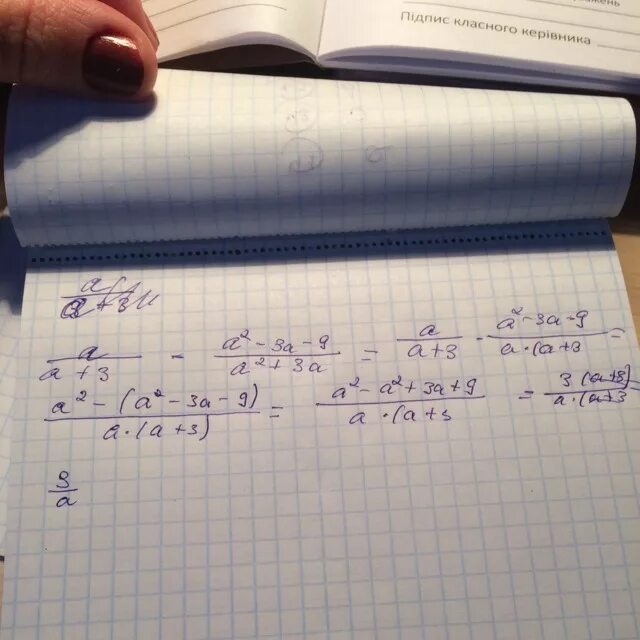 Підпис класного керівника
a/(a+3) - (a²-3a-9)/(a²+3a) = a/(a+3) - (a²-3a-9)/(a·(a+3) =
(a²-(a²-3a-9))/(a·(a+3)) = (a²-a²+3a+9)/(a·(a+3) = 3(a+3)/(a·(a+3)
3/a